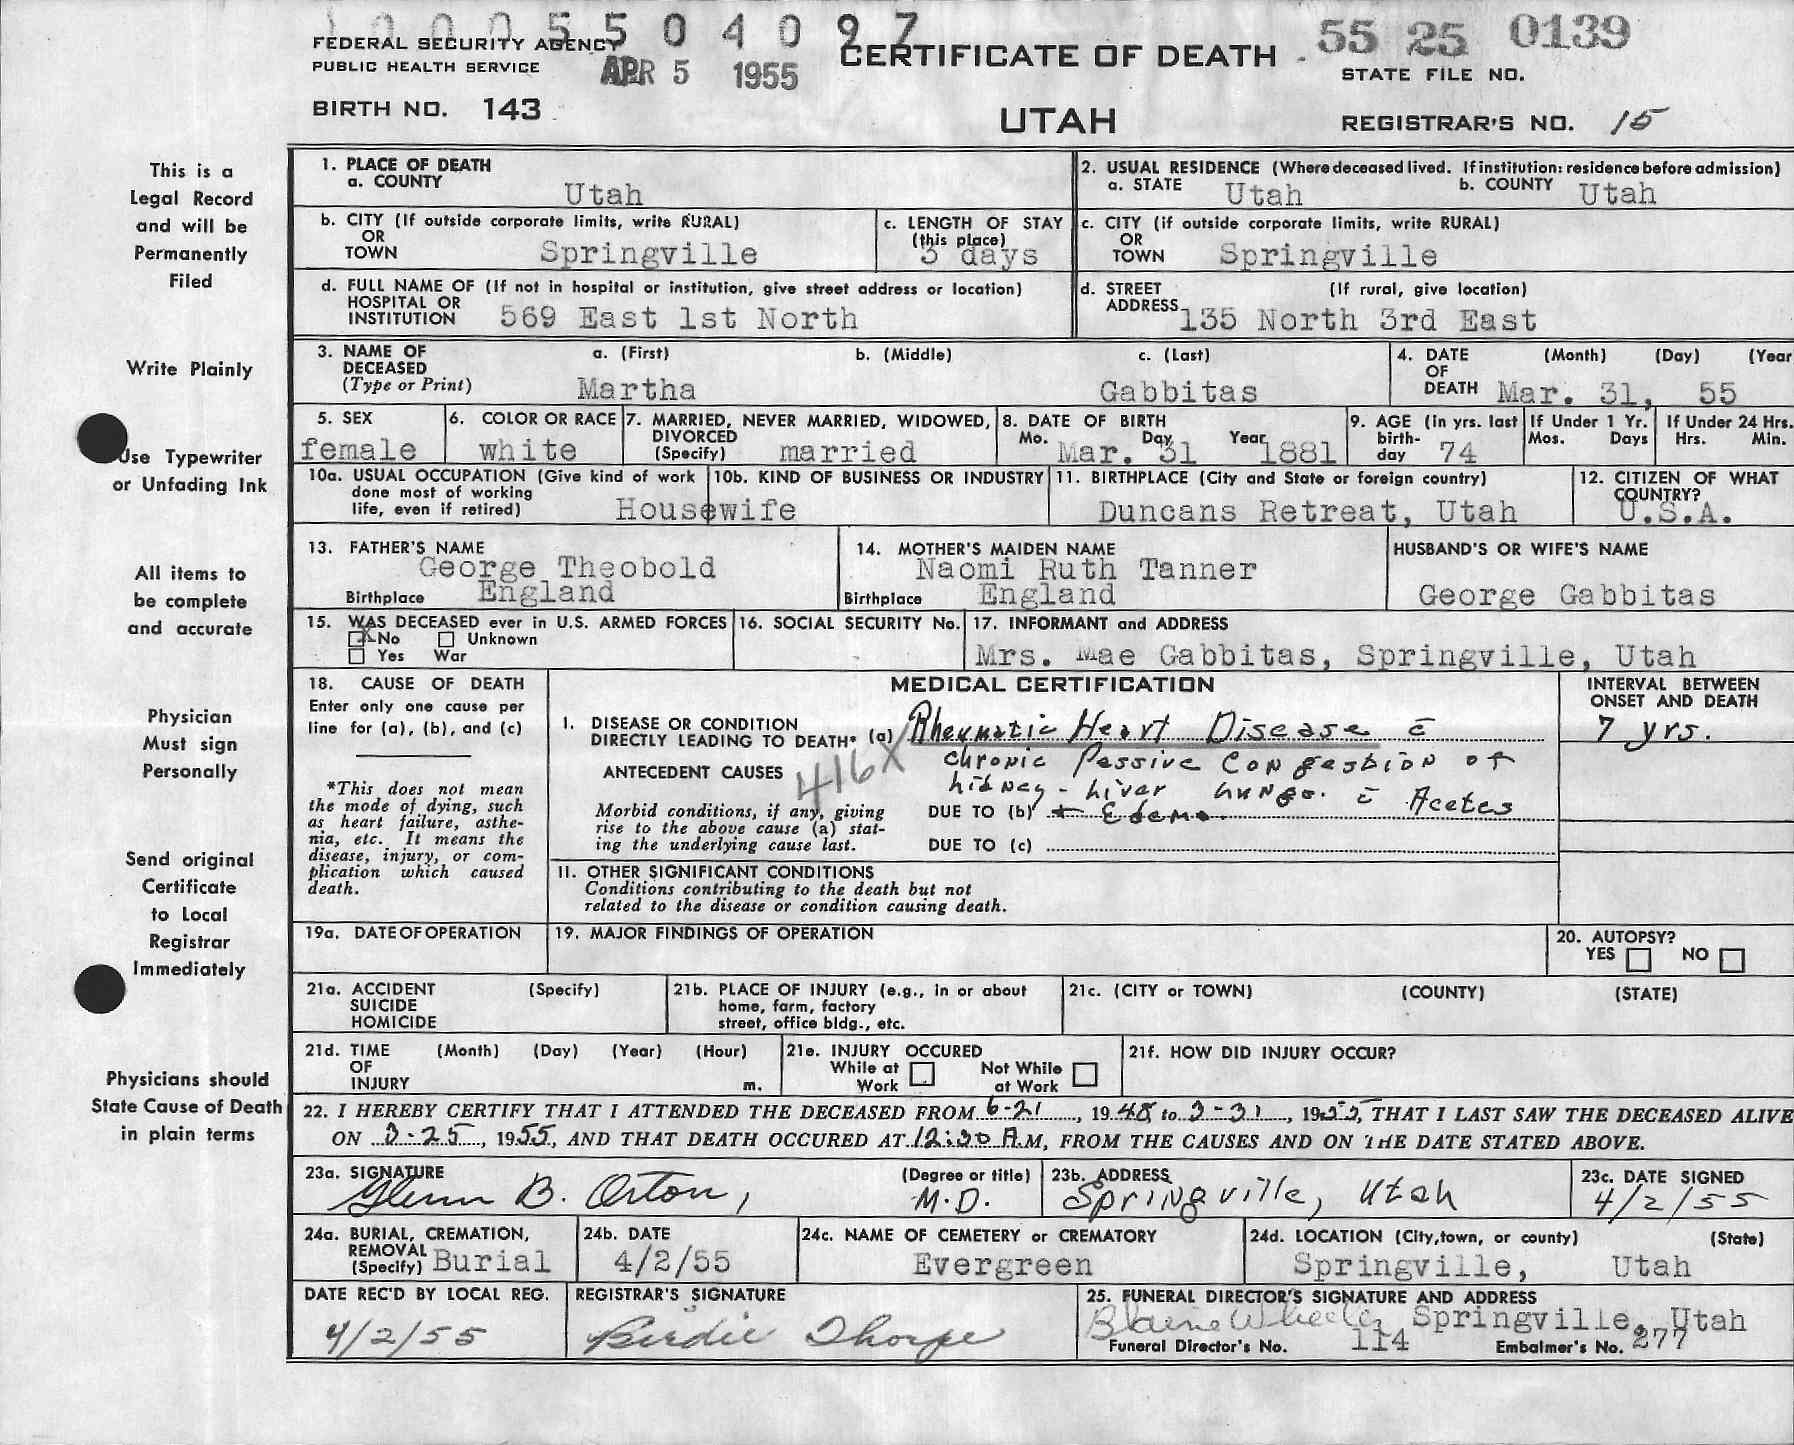 1000550 4097
FEDERAL SECURITY AGENCY
PUBLIC HEALTH SERVICE
APR 5 1955
CERTIFICATE OF DEATH
55 25 0139
STATE FILE NO.
BIRTH NO. 143
UTAH
REGISTRAR'S NO. 15
This is a
Legal Record
and will be
Permanently
Filed
Write Plainly
Use Typewriter
or Unfading Ink
All items to
be complete
and accurate
Physician
Must sign
Personally
Send original
Certificate
to Local
Registrar
Immediately
Physicians should
State Cause of Death
in plain terms
1. PLACE OF DEATH
a. COUNTY Utah
2. USUAL RESIDENCE (Where deceased lived. If institution: residence before admission)
a. STATE Utah b. COUNTY Utah
b. CITY (If outside corporate limits, write RURAL)
OR
TOWN Springville
c. LENGTH OF STAY
(this place)
3 days
c. CITY (if outside corporate limits, write RURAL)
OR
TOWN Springville
d. FULL NAME OF (If not in hospital or institution, give street address or location)
HOSPITAL OR
INSTITUTION 569 East 1st North
d. STREET (If rural, give location)
ADDRESS 135 North 3rd East
3. NAME OF a. (First) b. (Middle) c. (Last)
DECEASED
(Type or Print) Martha Gabbitas
4. DATE (Month) (Day) (Year
OF
DEATH Mar. 31, 55
5. SEX
female
6. COLOR OR RACE
white
7. MARRIED, NEVER MARRIED, WIDOWED,
DIVORCED
(Specify) married
8. DATE OF BIRTH
Mo. Day Year
Mar. 31 1881
9. AGE (In yrs. last
birth-
day 74
If Under 1 Yr.
Mos. Days
If Under 24 Hrs.
Hrs. Min.
10a. USUAL OCCUPATION (Give kind of work
done most of working
life, even if retired) Housewife
10b. KIND OF BUSINESS OR INDUSTRY
11. BIRTHPLACE (City and State or foreign country)
Duncans Retreat, Utah
12. CITIZEN OF WHAT
COUNTRY?
U.S.A.
13. FATHER'S NAME
George Theobold
Birthplace England
14. MOTHER'S MAIDEN NAME
Naomi Ruth Tanner
Birthplace England
HUSBAND'S OR WIFE'S NAME
George Gabbitas
15. WAS DECEASED ever in U.S. ARMED FORCES
X No Unknown
Yes War
16. SOCIAL SECURITY No.
17. INFORMANT and ADDRESS
Mrs. Mae Gabbitas, Springville, Utah
18. CAUSE OF DEATH
Enter only one cause per
line for (a), (b), and (c)
*This does not mean
the mode of dying, such
as heart failure, asthe-
nia, etc. It means the
disease, injury, or com-
plication which caused
death.
MEDICAL CERTIFICATION
INTERVAL BETWEEN
ONSET AND DEATH
1. DISEASE OR CONDITION
DIRECTLY LEADING TO DEATH* (a) Rheumatic Heart Disease c̄
7 yrs.
chronic Passive Congestion of
ANTECEDENT CAUSES 416X
kidney - Liver Lungs. c̄ Acetes
Morbid conditions, if any, giving
rise to the above cause (a) stat-
ing the underlying cause last.
DUE TO (b) + Edema
DUE TO (c)
11. OTHER SIGNIFICANT CONDITIONS
Conditions contributing to the death but not
related to the disease or condition causing death.
19a. DATE OF OPERATION
19. MAJOR FINDINGS OF OPERATION
20. AUTOPSY?
YES NO
21a. ACCIDENT (Specify)
SUICIDE
HOMICIDE
21b. PLACE OF INJURY (e.g., in or about
home, farm, factory
street, office bldg., etc.
21c. (CITY or TOWN) (COUNTY) (STATE)
21d. TIME (Month) (Day) (Year) (Hour)
OF
INJURY m.
21e. INJURY OCCURED
While at Work Not While at Work
21f. HOW DID INJURY OCCUR?
22. I HEREBY CERTIFY THAT I ATTENDED THE DECEASED FROM 6-21, 1948 to 3-31, 1955, THAT I LAST SAW THE DECEASED ALIVE
ON 3-25, 1955, AND THAT DEATH OCCURED AT 12:30 A.M, FROM THE CAUSES AND ON THE DATE STATED ABOVE.
23a. SIGNATURE (Degree or title)
Glenn B. Orton, M.D.
23b. ADDRESS
Springville, Utah
23c. DATE SIGNED
4/2/55
24a. BURIAL, CREMATION,
REMOVAL
(Specify) Burial
24b. DATE
4/2/55
24c. NAME OF CEMETERY or CREMATORY
Evergreen
24d. LOCATION (City, town, or county) (State)
Springville, Utah
DATE REC'D BY LOCAL REG.
4/2/55
REGISTRAR'S SIGNATURE
Birdie Thorpe
25. FUNERAL DIRECTOR'S SIGNATURE AND ADDRESS
Blaine Wheeler Springville, Utah
Funeral Director's No. 114 Embalmer's No. 277